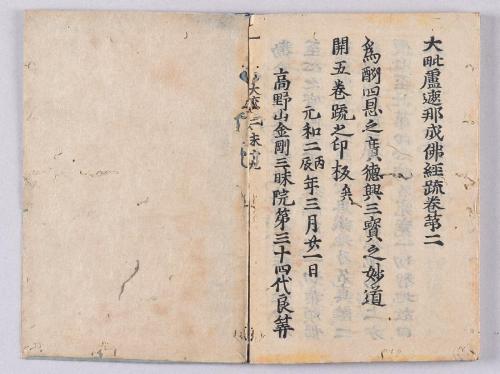 大毗盧遮那成佛經疏卷第二
為酬四恩之廣德興三寳之妙道
開五卷䟽之印板矣
元和二丙辰年三月廿一日
高野山金剛三昧院第三十四代良算